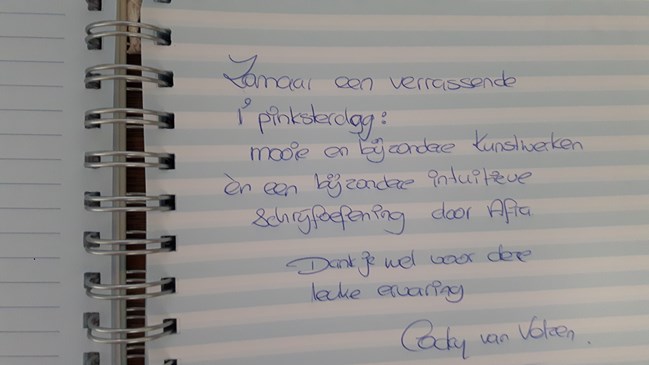 Zomaar een verrassende
1e pinksterdag:
mooie en bijzondere kunstwerken
èn een bijzondere intuitieve
schrijfoefening door Afra
Dank je wel voor deze
leuke ervaring
Cocky van